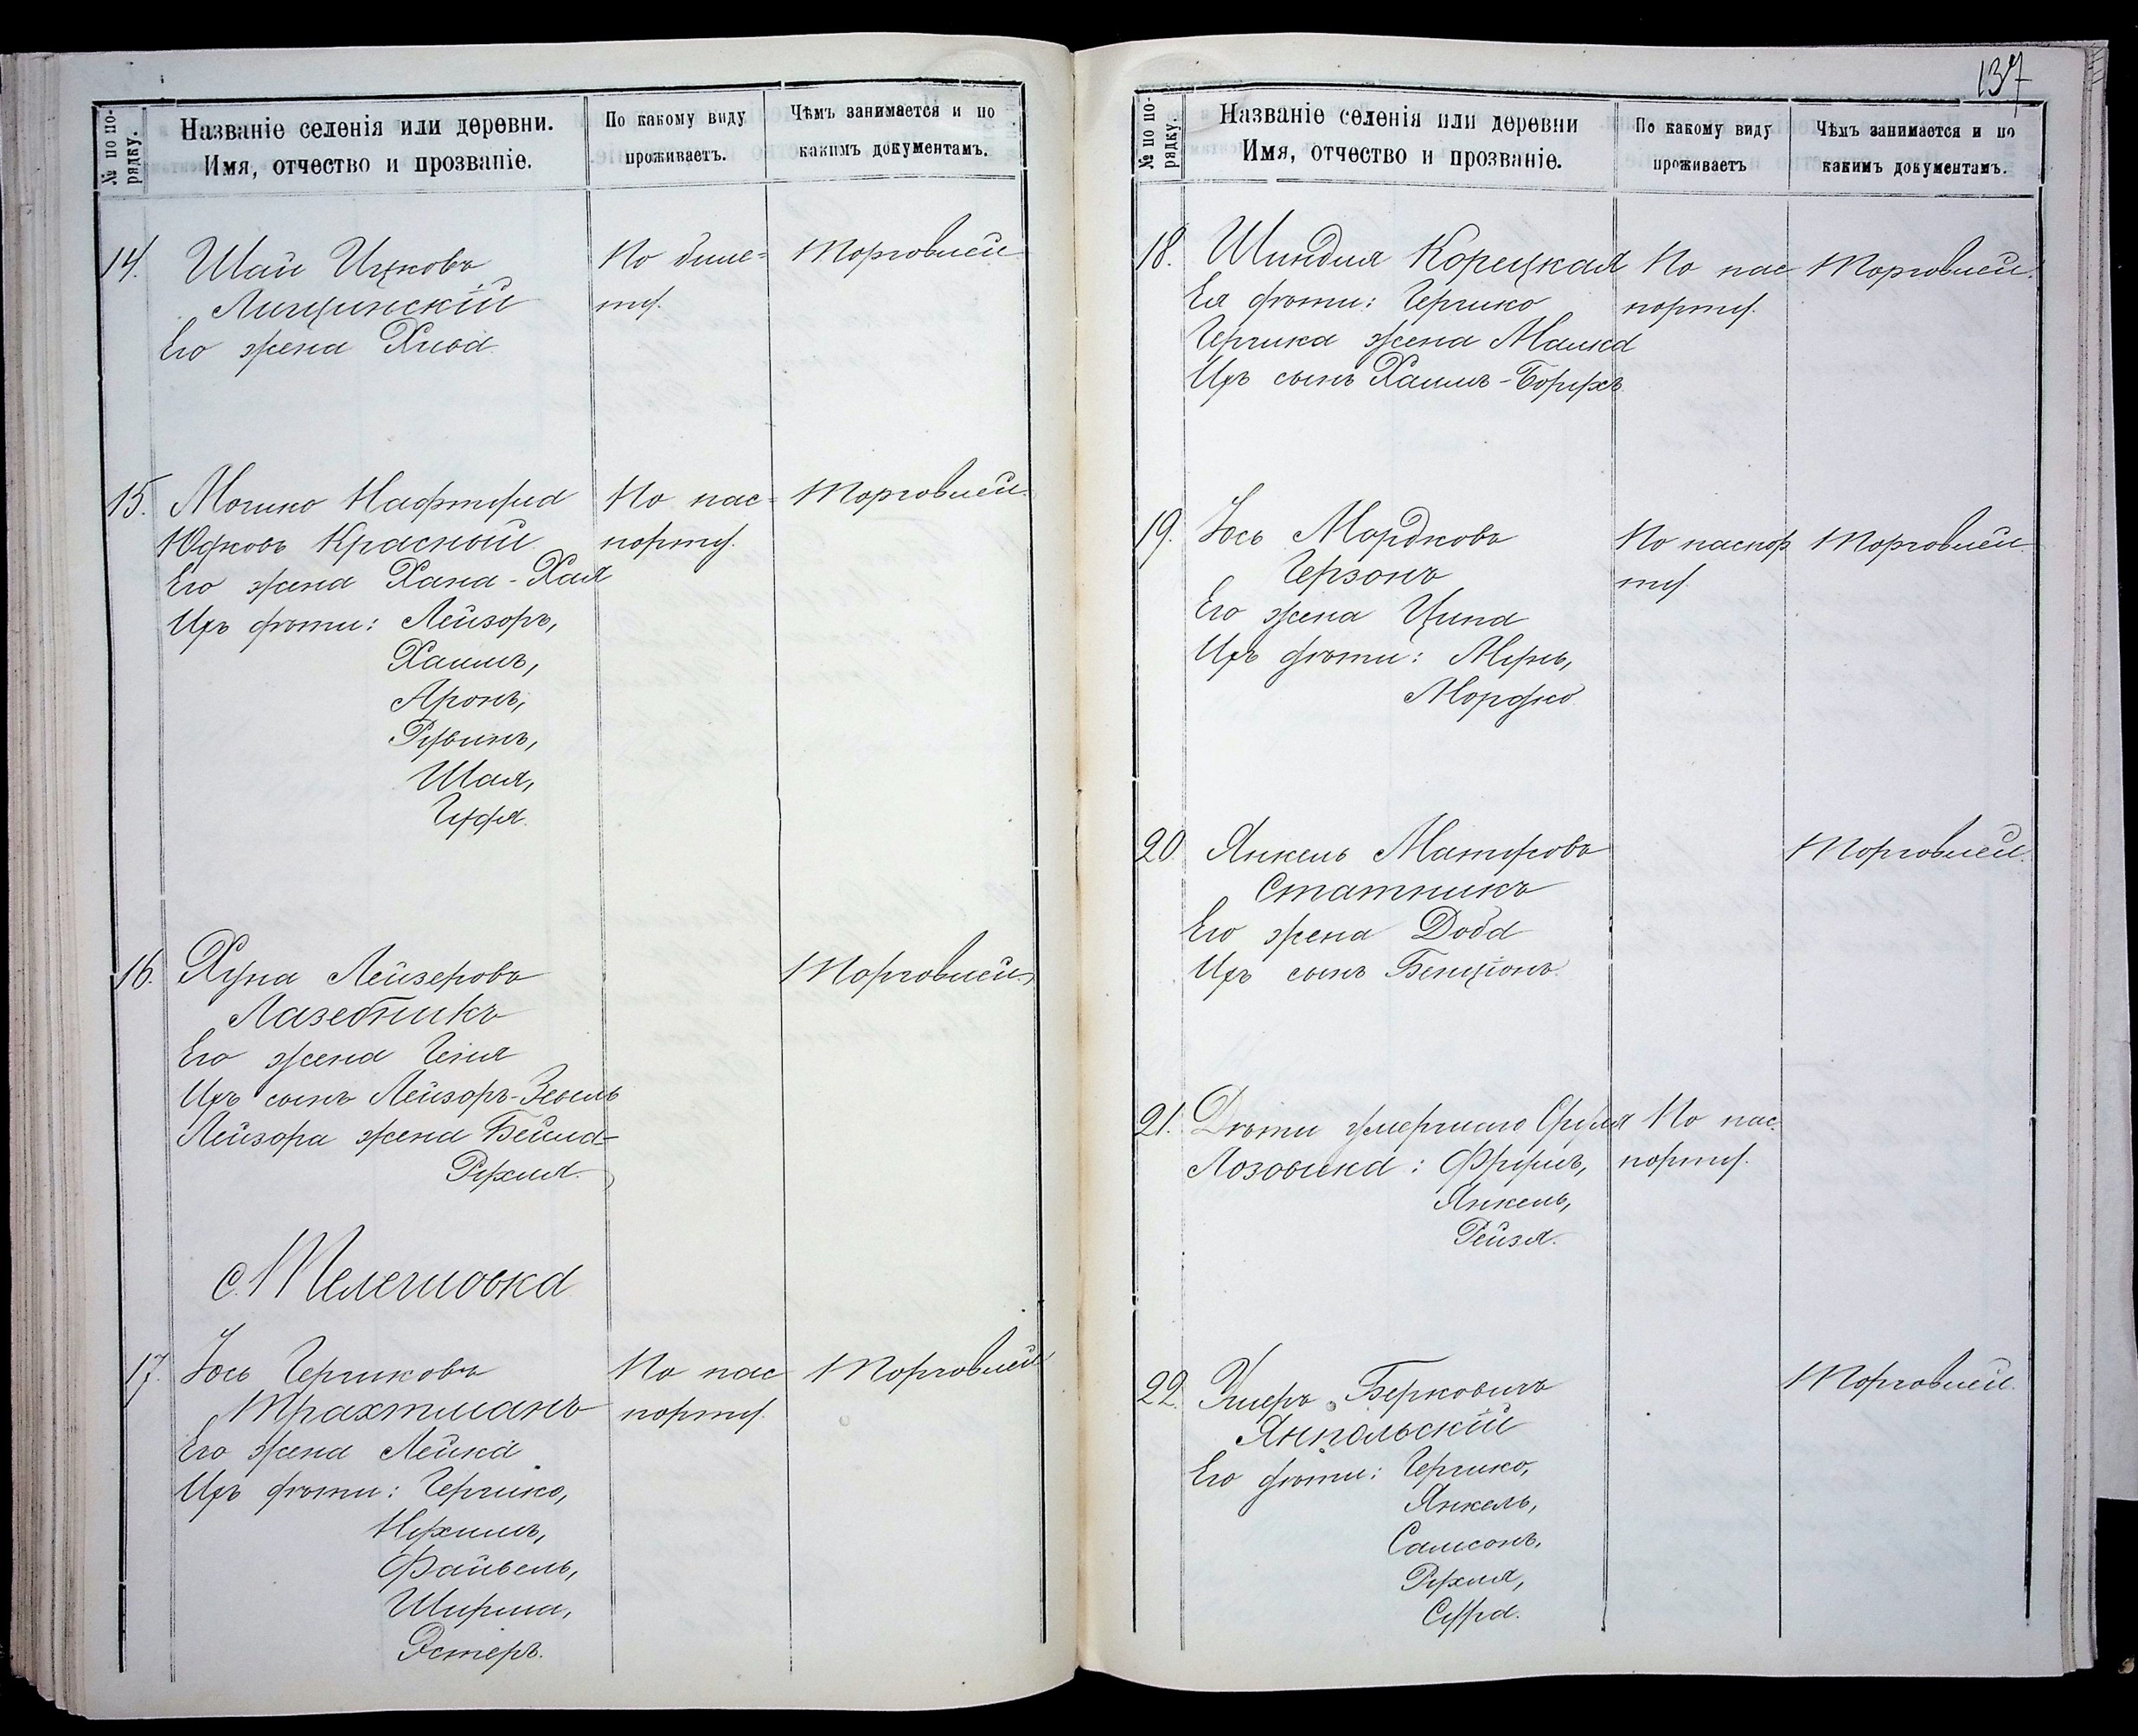 № по по-
рядку.
Названіе селенія или деревни.
Имя, отчество и прозваніе.
По какому виду
проживаетъ.
Чѣмъ занимается и по
какимъ документамъ.
14. Шая Ицковъ По биле= Торговлей
Лищинскій ту.
Его жена Хива
15. Мошко Нафтула По пас= Торговлей.
Юдковъ Красный порту.
Его жена Хана-Хая
Ихъ дѣти: Лейзоръ,
Хаимъ,
Аронъ,
Рувинъ,
Шая,
Гудя.
16. Хуна Лейзеровъ Торговлей.
Лазебникъ
Его жена Геня
Ихъ сынъ Лейзоръ-Зевель
Лейзора жена Бейла-
Рухля.
с. Телешовка
17. Іось Гершковъ По пас Торговлей
Трахтманъ порту.
Его жена Лейка
Ихъ дѣти: Гершко,
Нухимъ,
Файвель,
Ширма,
Эстеръ.
137
№ по по-
рядку.
Названіе селенія или деревни
Имя, отчество и прозваніе.
По какому виду
проживаетъ
Чѣмъ занимается и по
какимъ документамъ.
18. Шиндля Корецкая По пас Торговлей.
Ея дѣти: Гершко порту.
Гершка жена Малка
Ихъ сынъ Хаимъ-Борухъ
19. Іось Мордковъ По паспор Торговлей.
Герзонъ ту.
Его жена Ципа
Ихъ дѣти:
Мордко
20. Янкель Матусовъ Торговлей.
Статникъ
Его жена Доба
Ихъ сынъ Бенціонъ.
21. Дѣти умершаго Сруля По пас.
Лозовика: Фроимъ, порту.
Янкель,
Рейзя.
22. Умеръ Берковичъ Торговлей.
Янпольскій
Его дѣти: Гершко,
Янкель,
Самсонъ,
Рухля,
Сура.